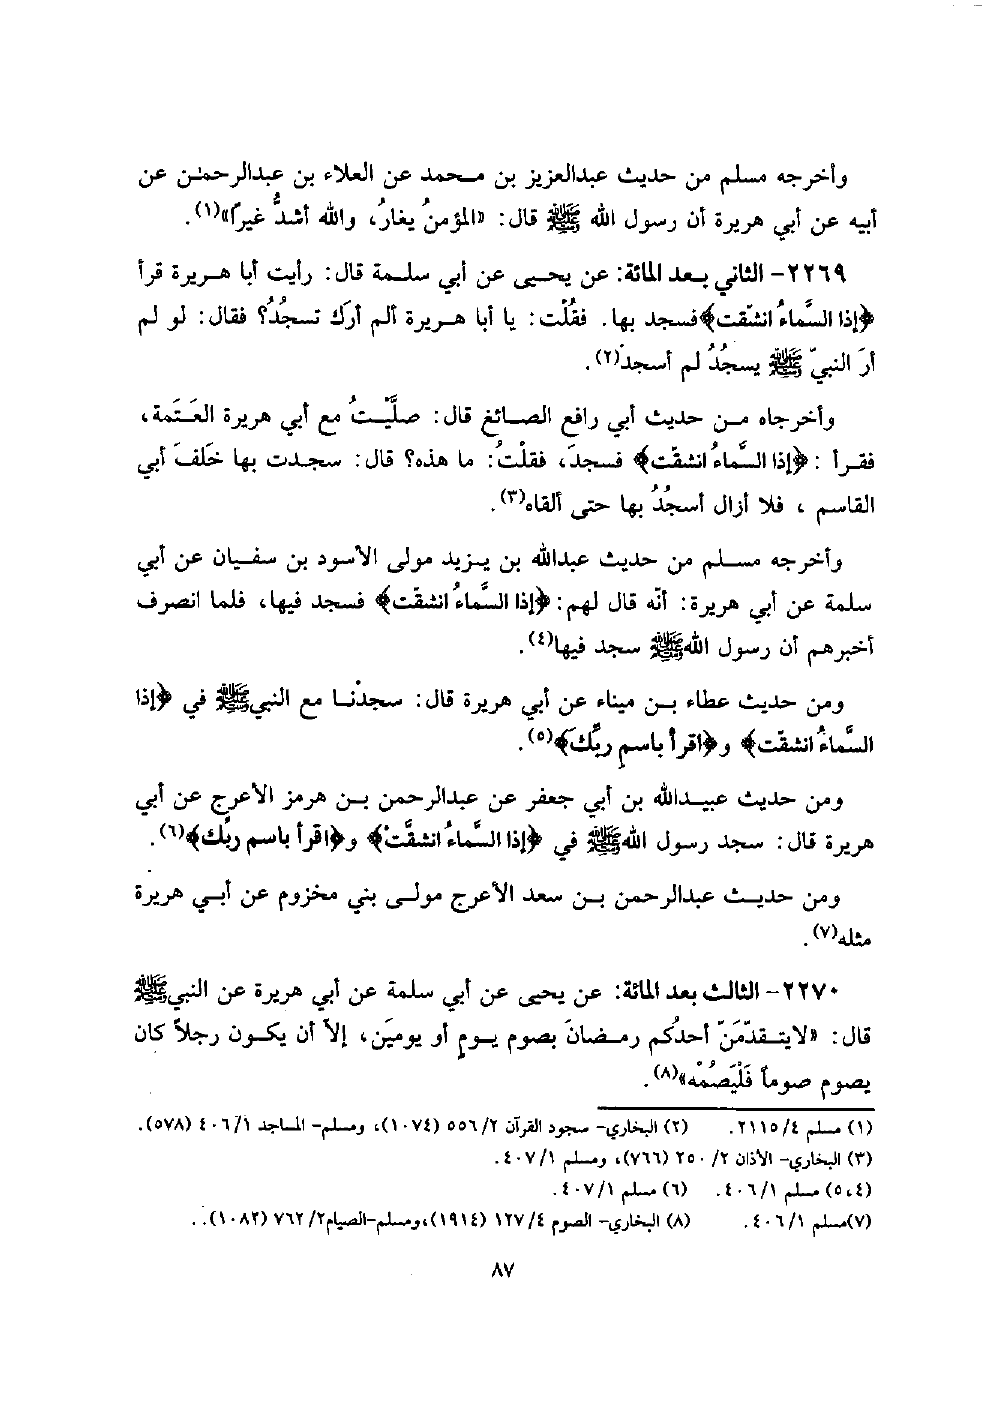 وأخرجه مسلم من حديث عبدالعزيز بن محمد عن العلاء بن عبدالرحمن عن
أبيه عن أبي هريرة أن رسول الله ﷺ قال: «المؤمنُ يغارُ، والله أشدُّ غيراً»(١).
٢٢٦٩- الثاني بعد المائة: عن يحيى عن أبي سلمة قال: رأيت أبا هريرة قرأ
﴿إذا السَّماءُ انشقّت﴾فسجد بها. فقُلْت: يا أبا هريرة ألم أرَكَ تسجُدُ؟ فقال: لو لم
أرَ النبيّ ﷺ يسجُدُ لم أسجدْ(٢).
وأخرجاه من حديث أبي رافع الصائغ قال: صلَّيْتُ مع أبي هريرة العَتَمة،
فقرأ :﴿إذا السَّماءُ انشقّت﴾ فسجدَ، فقلْتُ: ما هذه؟ قال: سجدت بها خَلفَ أبي
القاسم ، فلا أزال أسجُدُ بها حتى ألقاه(٣).
وأخرجه مسلم من حديث عبدالله بن يزيد مولى الأسود بن سفيان عن أبي
سلمة عن أبي هريرة: أنّه قال لهم:﴿إذا السَّماءُ انشقّت﴾ فسجد فيها، فلما انصرف
أخبرهم أن رسول اللهﷺ سجد فيها(٤).
ومن حديث عطاء بن ميناء عن أبي هريرة قال: سجدْنا مع النبيﷺ في ﴿إذا
السَّماءُ انشقّت﴾ و﴿اقرأ باسمِ ربِّكَ﴾(٥).
ومن حديث عبيدالله بن أبي جعفر عن عبدالرحمن بن هرمز الأعرج عن أبي
هريرة قال: سجد رسول اللهﷺ في ﴿إذا السَّماءُ انشقَّتْ﴾ و﴿اقرأ باسم ربِّك﴾(٦).
ومن حديث عبدالرحمن بن سعد الأعرج مولى بني مخزوم عن أبي هريرة
مثله(٧).
٢٢٧٠- الثالث بعد المائة: عن يحيى عن أبي سلمة عن أبي هريرة عن النبيﷺ
قال: «لايتقدّمَنّ أحدُكم رمضانَ بصوم يومٍ أو يومينَ، إلاّ أن يكون رجلاً كان
يصوم صوماً فَلْيَصُمْه»(٨).
(١) مسلم ٤/ ٢١١٥. (٢) البخاري- سجود القرآن ٢/ ٥٥٦ (١٠٧٤)، ومسلم- المساجد ١/ ٤٠٦ (٥٧٨).
(٣) البخاري- الأذان ٢/ ٢٥٠ (٧٦٦)، ومسلم ١/ ٤٠٧.
(٤،٥) مسلم ١/ ٤٠٦. (٦) مسلم ١/ ٤٠٧.
(٧)مسلم ١/ ٤٠٦. (٨) البخاري- الصوم ٤/ ١٢٧ (١٩١٤)،ومسلم-الصيام٢/ ٧٦٢ (١٠٨٢). .
٨٧